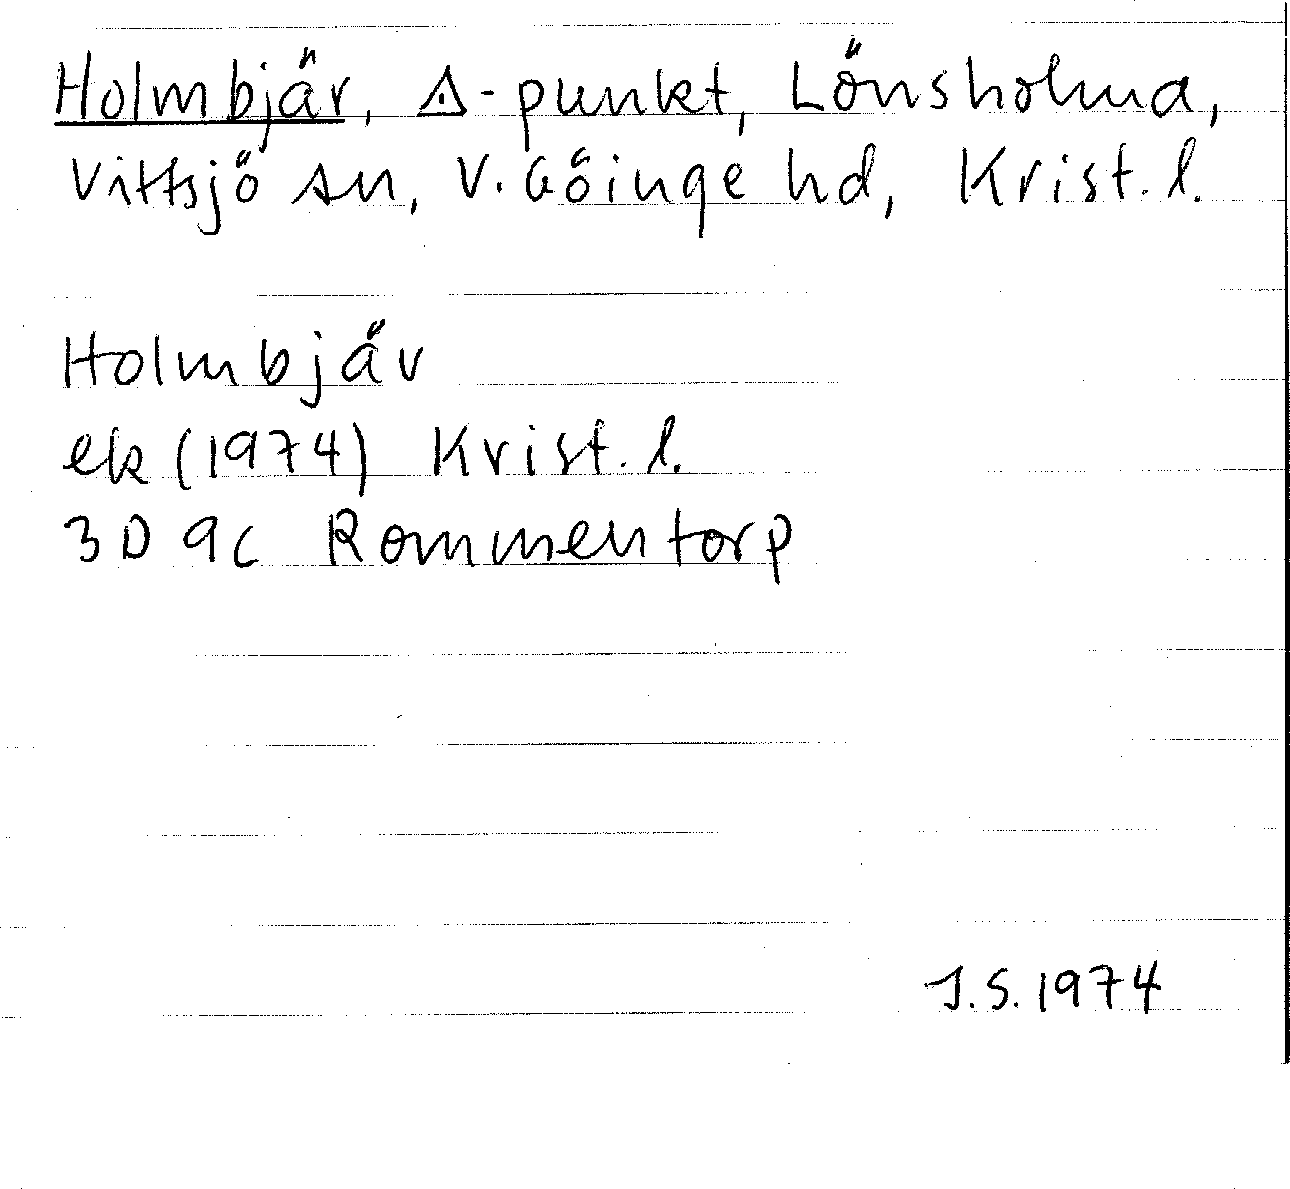 Holmbjär, ◬-punkt, Lönsholma,
Vittsjö sn, V. Göinge hd, Krist. l.
Holmbjär
ek (1974) Krist. l.
3D 9c Rommentorp
J.S. 1974